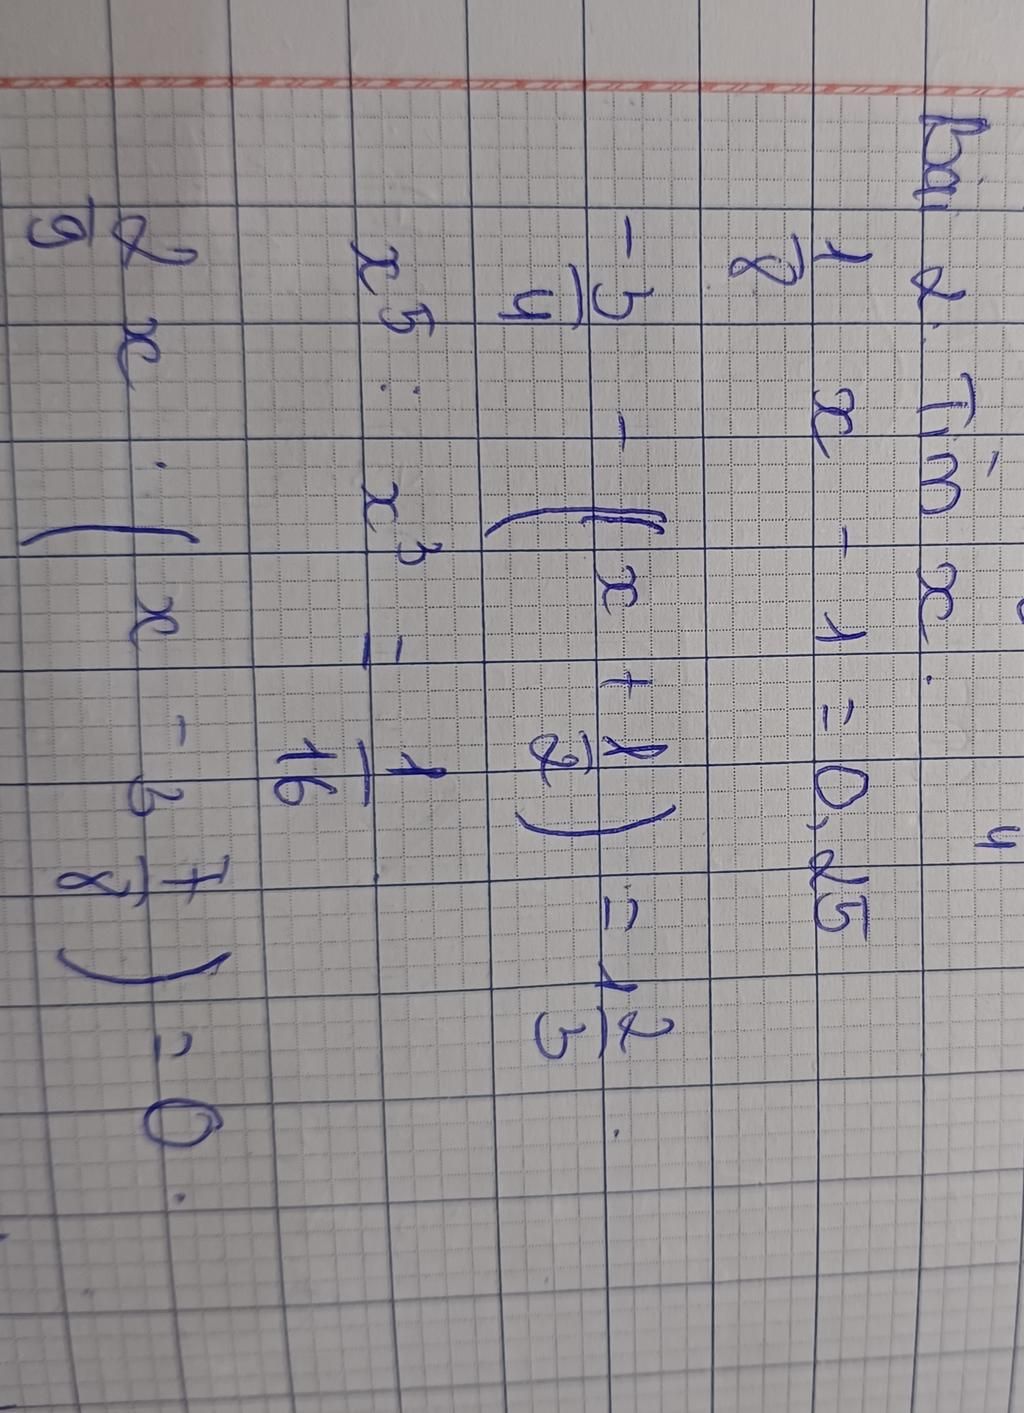 bài 2. Tìm x.
1/8 x - 1 = 0,25
-3/4 - (x + 1/2) = 1 2/3.
x^5 : x^3 = 1/16
2/9 x . (x - 3 7/8) = 0.